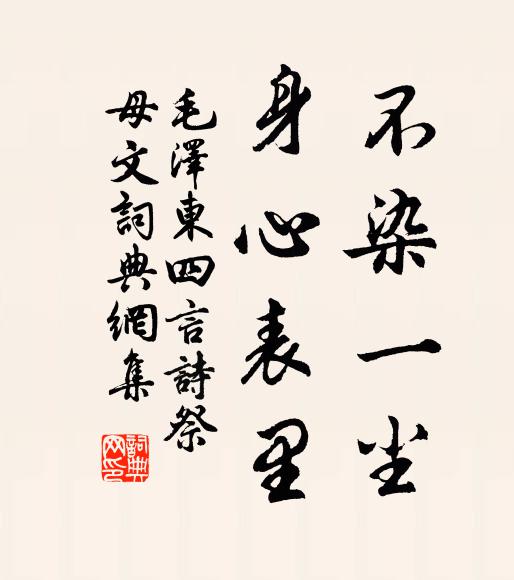 不染一尘
身心表里
毛澤東四言詩祭
母文詞典網集
詞典网印